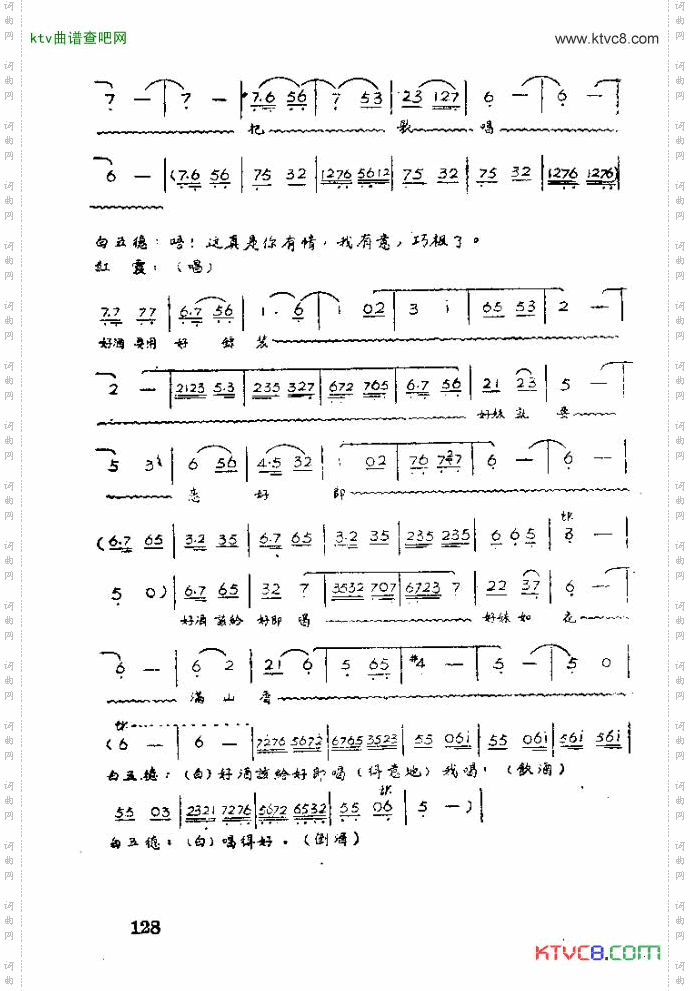 ktv曲谱查吧网
www.ktvc8.com
7 — | 7 — | 7.6 56 | 7 53 | 23 127 | 6 — | 6 — |
把 歌 唱
6 — | (7.6 56 | 75 32 | 1276 5612 | 75 32 | 75 32 | 1276 1276)
白五德：唔！这真是你有情，我有意，巧极了。
红霞：（唱）
7.7 77 | 6.7 56 | 1. 6 | i 02 | 3 i | 65 53 | 2 —
好酒要用 好 装
2 — | 2123 5.3 | 235 327 | 672 765 | 6.7 56 | 21 23 | 5 —
好妹 就 要
5 3 | 6 56 | 4.5 32 | i 02 | 76 | 6 — | 6 —
恋 好 郎
(6.7 65 | 3.2 35 | 6.7 65 | 3.2 35 | 235 235 | 6 65 | —
5 0) | 6.7 65 | 32 7 | 3532 707 | 6723 7 | 22 37 | 6 —
好酒該給 好郎 喝 好妹 如 花
6 — | 6 2 | 21 6 | 5 65 | #4 — | 5 — | 5 0
满 山 香
(6 — | 6 — | 7276 5672 | 6765 3523 | 55 061 | 55 061 | 561 561 |
白五德：（白）好酒該給好郎喝（得意地）我喝！（飲酒）
55 03 | 2321 7276 | 5672 6532 | 55 06 | 5 —) |
白五德：（白）喝得好。（倒酒）
128
KTVC8.COM